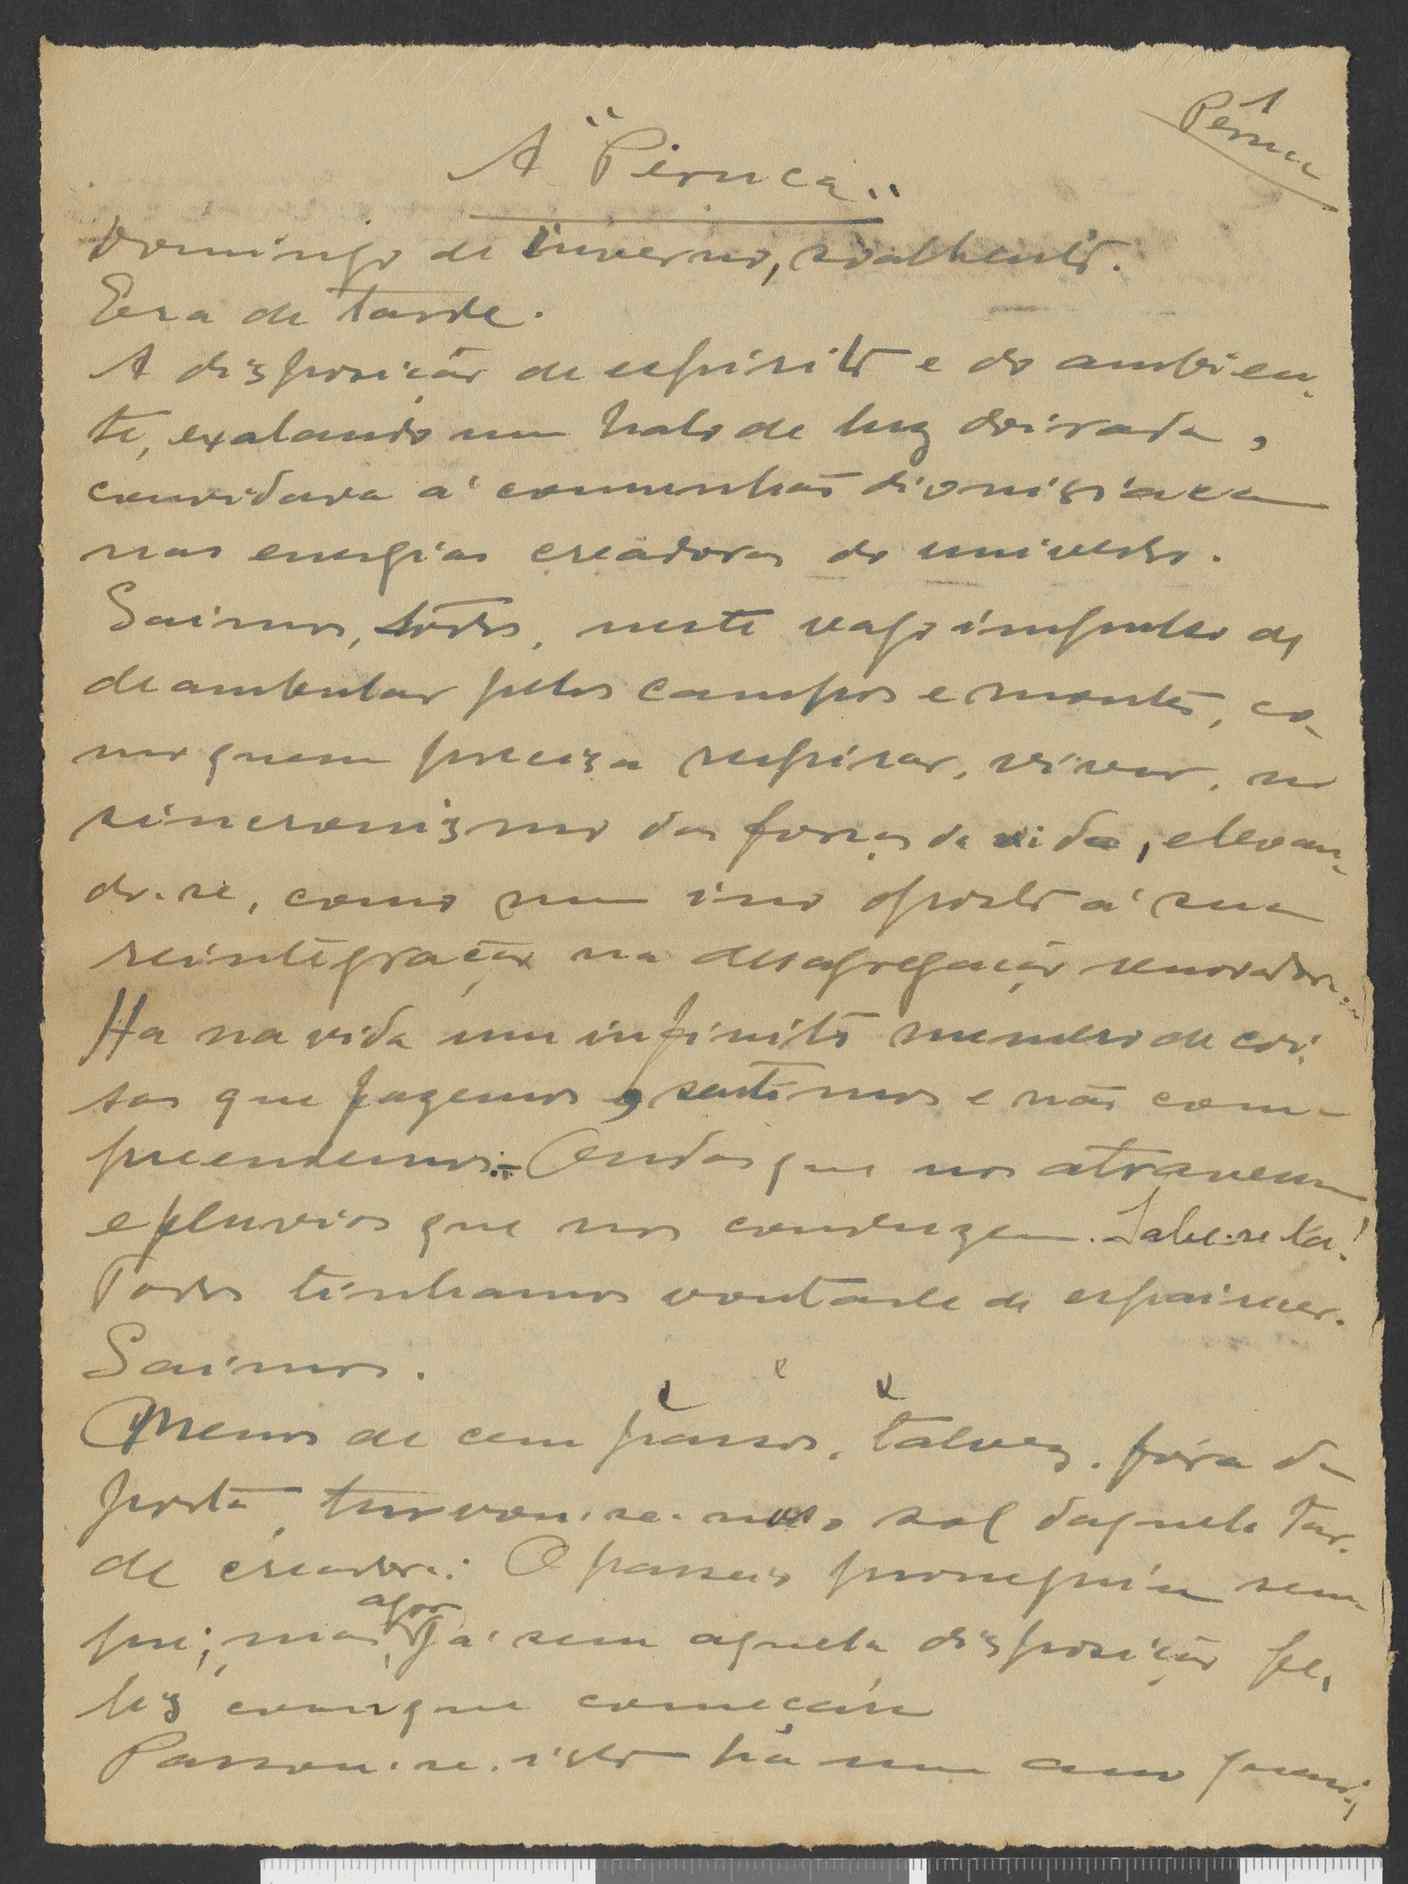 1
Peruca
A "Peruca"
Domingo de inverno, soalhento.
Era de tarde.
A disposição de espirito e do ambien-
te, exalando um halo de luz doirada,
convidava á comunhão dionisiaca
nas energias creadoras do universo.
Saimos, todos, neste vago impulso de
deambular pelos campos e montes, co-
mo quem preciza respirar, viver, no
sincronizmo das forças da vida, elevan-
do-se, como num ino oposto á sua
reintegração na desagregação renovadora...
Ha na vida um infinito numero de coi-
sas que fazemos, sentimos e não com-
preendemos: Ondas que nos atravessam
efluvios que nos conduzem. Sabe-se lá!
Todos tinhamos vontade de espairecer.
Saimos.
Menos de cem passos, talvez, fóra da
porta, turvou-se-nos o sol daquela tar-
de creadora: O passeio proseguiu sem-
pre; mas agora já sem aquela disposição fe-
liz com que começára
Passou-se isto ha um ano quasi;